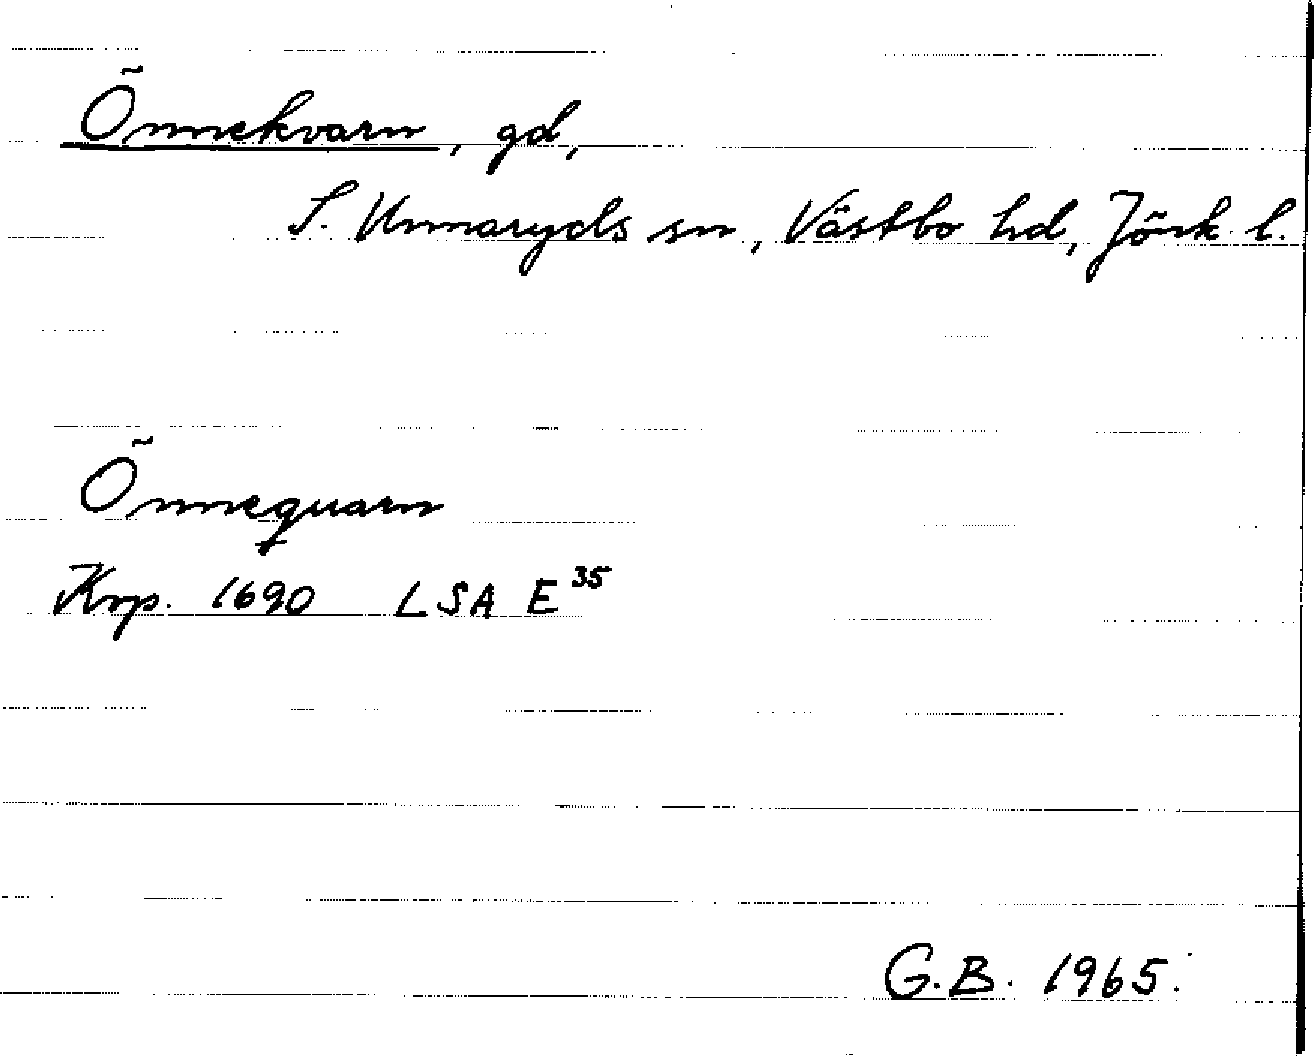 Önnekvarn, gd,
S. Unnaryds sn, Västbo hd, Jönk. l.
Önnequarn
Krp. 1690 LSA E 35
G.B. 1965.